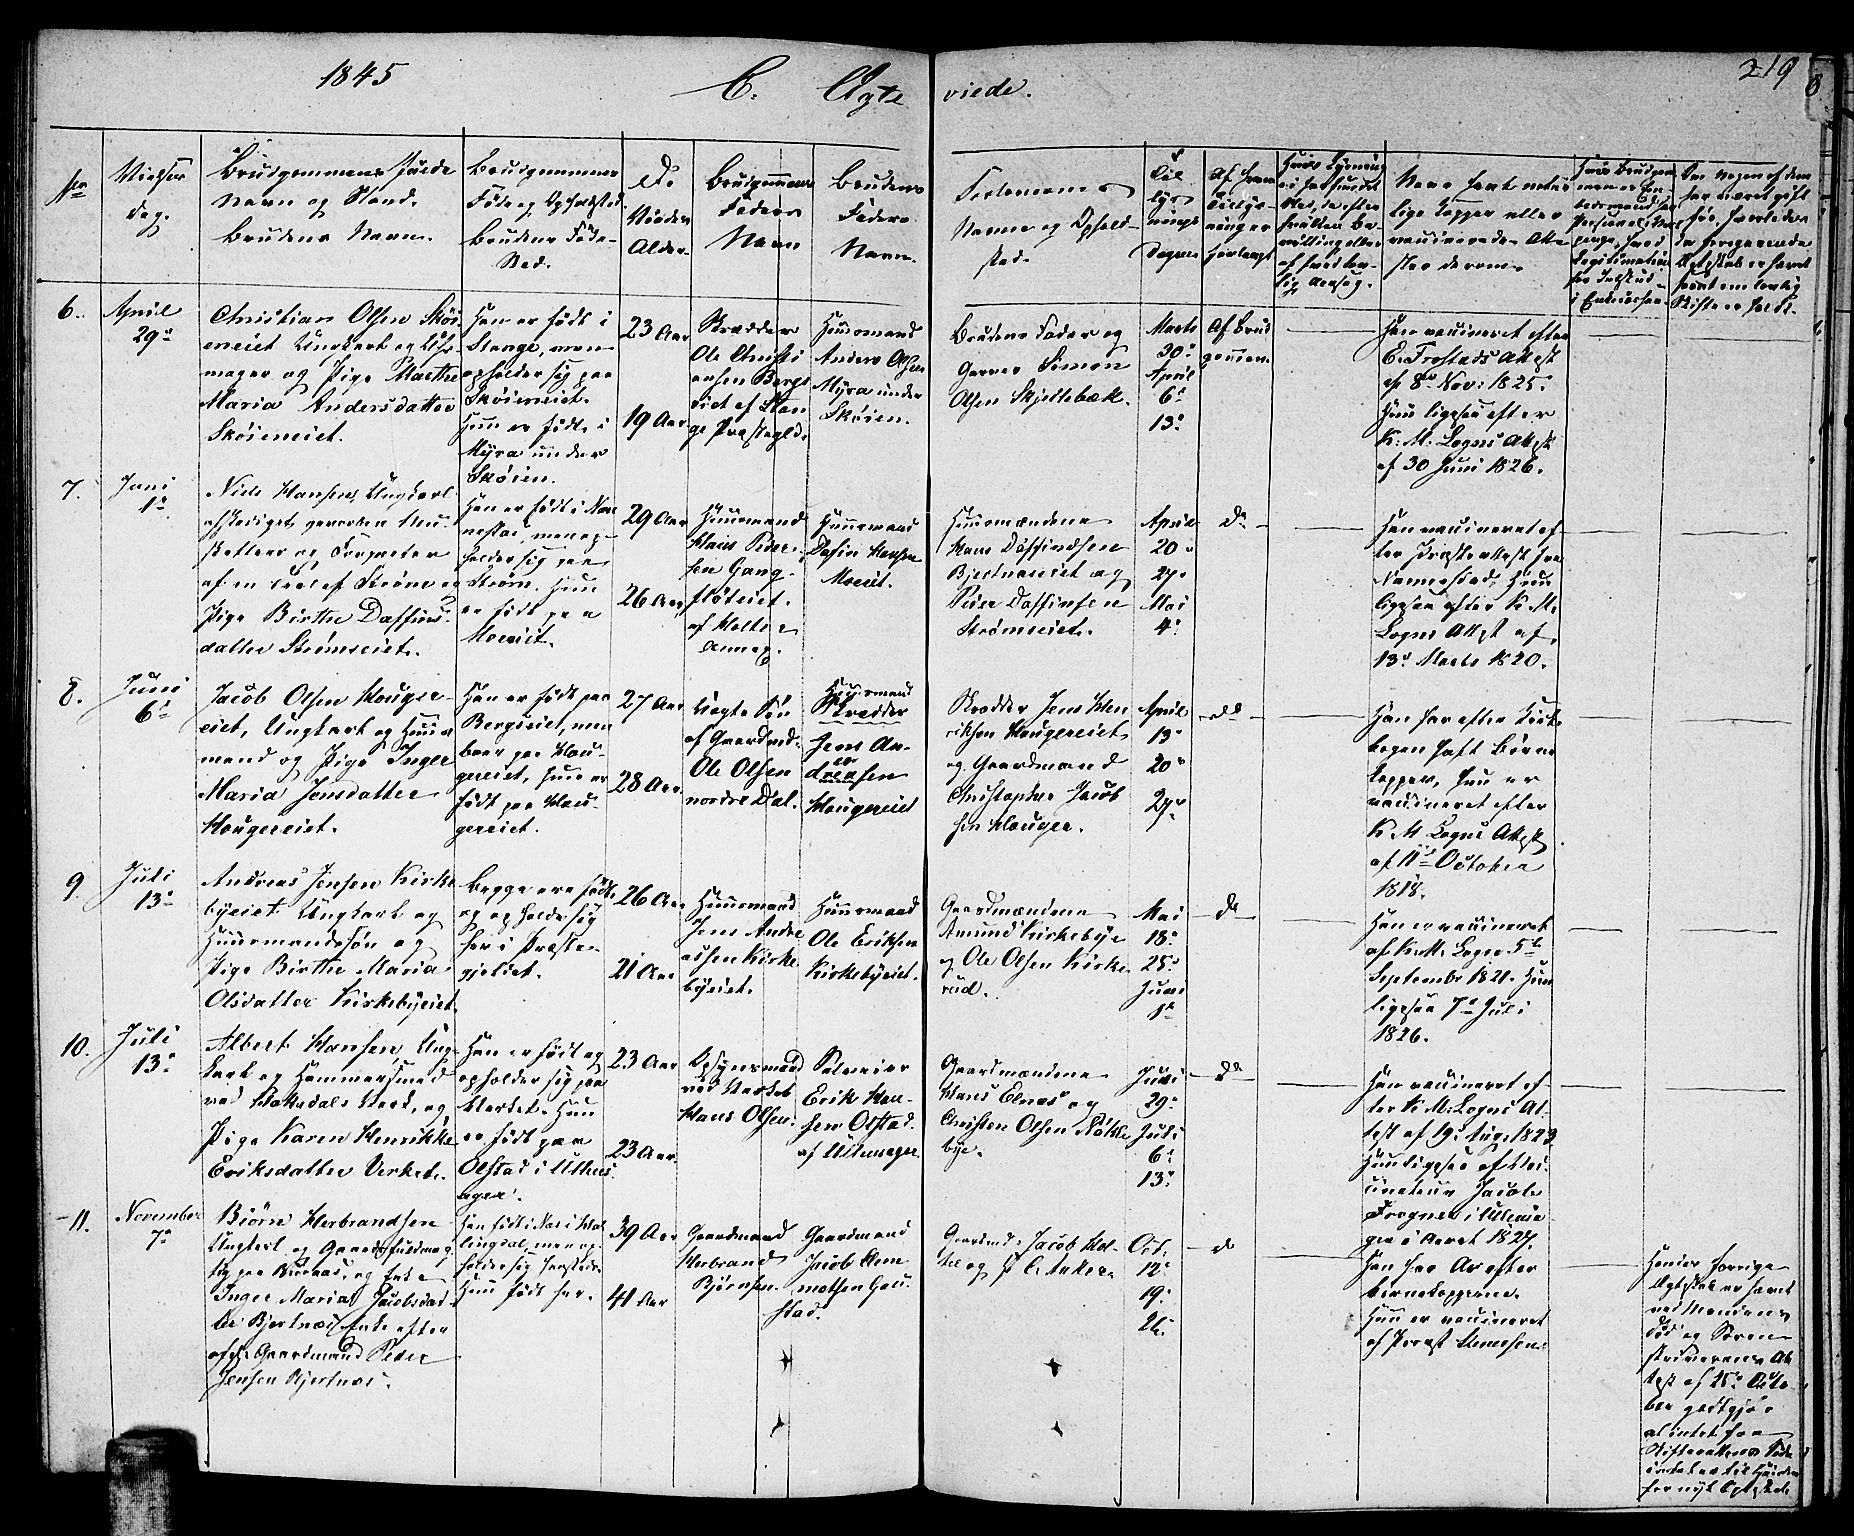 1845
C. Ægte viede.
219
No
Vielses
Dag.
Brudgommens fulde
Navn og Stand.
Brudens Navn.
Brudgommens
Føde og Opholdssted.
Brudens Føde-
Sted.
Vieden
Alder.
Brudgommens
Faders
Navn
Brudens
Faders
Navn.
Forlovernes
Navne og Opholds-
sted.
Til
lys
nings
Dagene
Af hvem
Tillys-
ninger
forlangt
6.
April
29de
Christian Olsen Skøi-
eneiet Ungkarl og Uhr-
mager og Pige Marthe
Maria Andersdatter
Skøieneiet.
Han er født i
Stange, men
opholder sig paa
Skøieneiet.
Hun er født i
Myra under
Skøien.
23 Aar
19 Aar
Skrædder
Ole Christi
ansen Bergs
eiet af Stan
ge Præstegld.
Huusmand
Anders Olsen
Myra under
Skøien.
Brudens Fader og
Garver Simon
Olsen Skjeltebæk.
Marts
30.
April
6.
13.
Af Brud
gommen.
Han vaccineret efter
E. Frostads Attest
af 8de Nov: 1825.
Hun ligesaa efter
K. M. Logns Attest
af 30 Juni 1826.
7.
Juni
1te
Niels Hansen, Ungkarl
afskediget geworben Mu-
sketteer og Trompeter
af en Træl af Strøm og
Pige Birthe Daffins-
datter Strømseiet.
Han er født i Nan
nestad, men op-
holder sig paa
Strøm. Hun
er født paa
Moeiet.
29 Aar
26 Aar
Huusmand
Hans Peder-
sen Gang-
fløteiet.
af Holter
Annex.
Huusmand
Dafin Hansen
Moeiet.
Huusmændene
Hans Daffindsen
Bjertnæseiet og
Peder Daffinsen
Strømseiet.
April
20.
27.
Mai
4.
Do
Han vaccineret ef-
ter Præsteattest fra
Nannestad, Hun
ligesaa efter K. M.
Logns Attest af
13de Marts 1820.
8.
Juni
6te
Jacob Olsen Houger-
eiet, Ungkarl og Huus-
mand og Pige Inger
Maria Jensdatter
Hougereiet.
Han er født paa
Bergseiet, men
boer paa Hou-
gereiet, hun er
født paa Hou-
gereiet.
27 Aar
28 Aar
Uægte Søn
af Gaardmd.
Ole Olsen
nordre Dal.
Huusmand
Skrædder
Jens An-
dreasen
Hougereiet
Skrædder Jens Hen
riksen Hougereiet
og Gaardmand
Christopher Jacob
sen Houger.
April
13.
20.
27.
Do
Han har efter Kirke-
bogen haft Børne
kopper, hun er
vaccineret efter
K M Logns Attest
af 11te October
1818.
9.
Juli
13.
Andreas Jensen Kirke
byeiet Ungkarl og
Huusmandssøn og
Pige Birthe Maria
Olsdatter Kirkebyeiet.
Begge ere fødte
og opholde sig
her i Præste-
gjeldet.
26 Aar
21 Aar
Huusmand
Jens Andre
assen Kirke
byeiet.
Huusmand
Ole Eriksen
Kirkebyeiet.
Gaardmændene
Amund Kirkebye
og Ole Olsen Kirke
rud.
Mai
18.
25.
Juni
1te
Do
Han er vaccineret
af K. M. Logn 5te
September 1821. Hun
ligesaa 7de Juli
1826.
10.
Juli
13.
Albert Hansen, Ung-
karl og Hammersmed
ved Hakedals Verk, og
Pige Karen Henrikke
Eriksdatter Verket.
Han er født og
opholder sig paa
Værket. Hun
er født paa
Olstad i Ullens-
ager.
23 Aar
23 Aar
Opsynsmand
ved Værket
Hans Olsen.
Erik Han-
sen Olstad.
af Ullensager
Gaardmændene
Hans Elnæs og
Christen Olsen Nøkle
bye.
Juni
29.
Juli
6.
13.
Do
Han vaccineret ef-
ter K. M. Logns At-
test af 19. Aug. 1823
Hun ligesaa af Vac-
cinateur Jacob
Frogner i Ullensa
ger i Aaret 1827.
11.
November
7de
Biørn Herbrandsen
Ungkarl og Gaardsfuldmæg
tig paa Biertnæs, og Enke
Inger Maria Jacobsdat-
ter Bjertnæs, Enke efter
afdø. Gaardmand Peder
Jensen Bjertnæs.
Han født i Næs i Hal
lingdal, men op-
holder sig hersteds.
Hun født her.
39 Aar
41 Aar
Gaardmand
Herbrand
Bjørnsen.
Gaardmand
Jacob Aem
motsen Gau-
stad.
Gaardmd. Jacob Hol-
ter og P. C. Anker.
Oct.
12.
19.
26.
Do
Han har Ar efter
Børnekopperne.
Hun er vaccineret
af Provst
Hendes forrige
Ægteskab er hævet
ved Mandens
Død og Soren-
skriverens At-
test af 25de Octo-
ber godtgjør
at intet fra
Skifterettens Side
er til Hinder
for nyt Ægteskab.